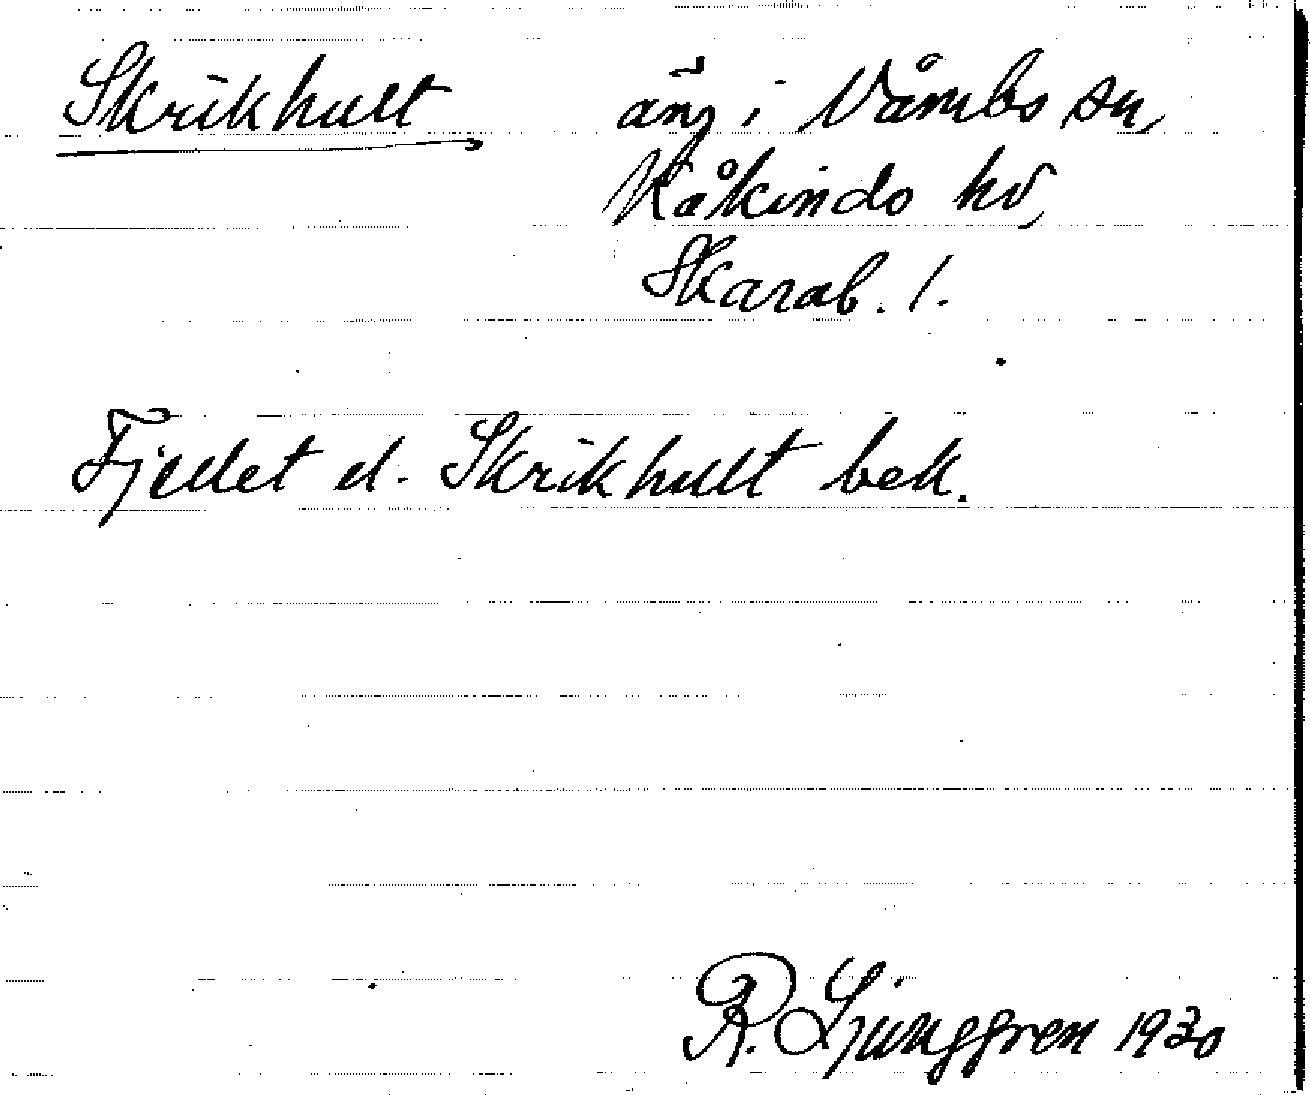 Skrikhult äng i Våmbs sn,
Kåkinds hd,
Skarab. l.
Fjellet el. Skrikhult bek.
R. Ljunggren 1930